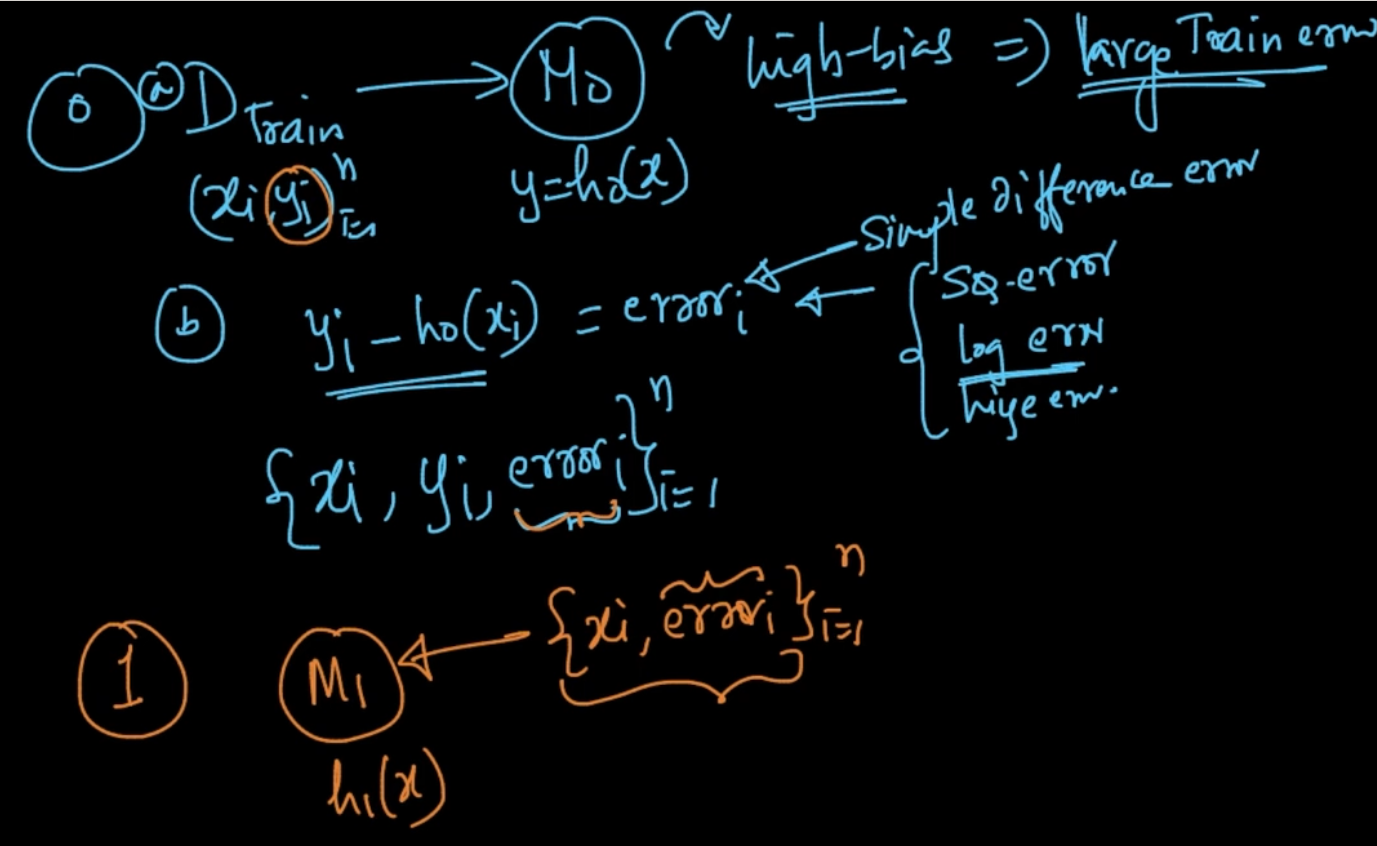 0 (a) D Train → M0 high-bias ⇒ large Train erro
(xi, yi) n i=1 y=h0(x)
(b) yi - h0(xi) = errori ← Simple difference error
← { SQ-error
log err
hige err.
{xi, yi, errori} n i=1
1 M1 ← {xi, errori} n i=1
h1(x)